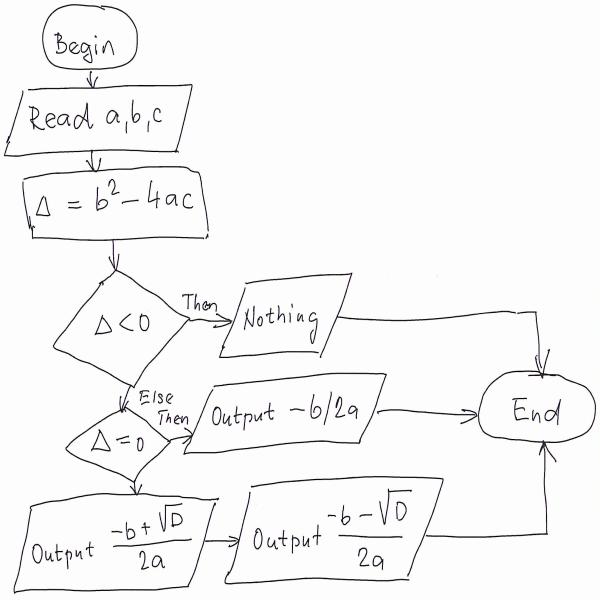 Begin
Read a,b,c
Δ = b² − 4ac
Δ < 0
Then
Nothing
Else
Then
Δ = 0
Output −b/2a
End
Output (−b + √D)/2a
Output (−b − √D)/2a